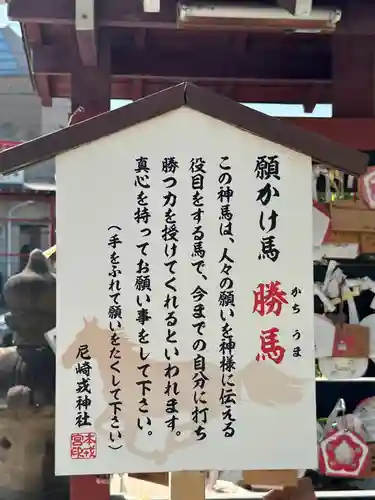 願かけ馬 勝馬
かち うま
この神馬は、人々の願いを神様に伝える
役目をする馬で、今までの自分に打ち
勝つ力を授けてくれるといわれます。
真心を持ってお願い事をして下さい。
（手をふれて願いをたくして下さい）
尼崎戎神社